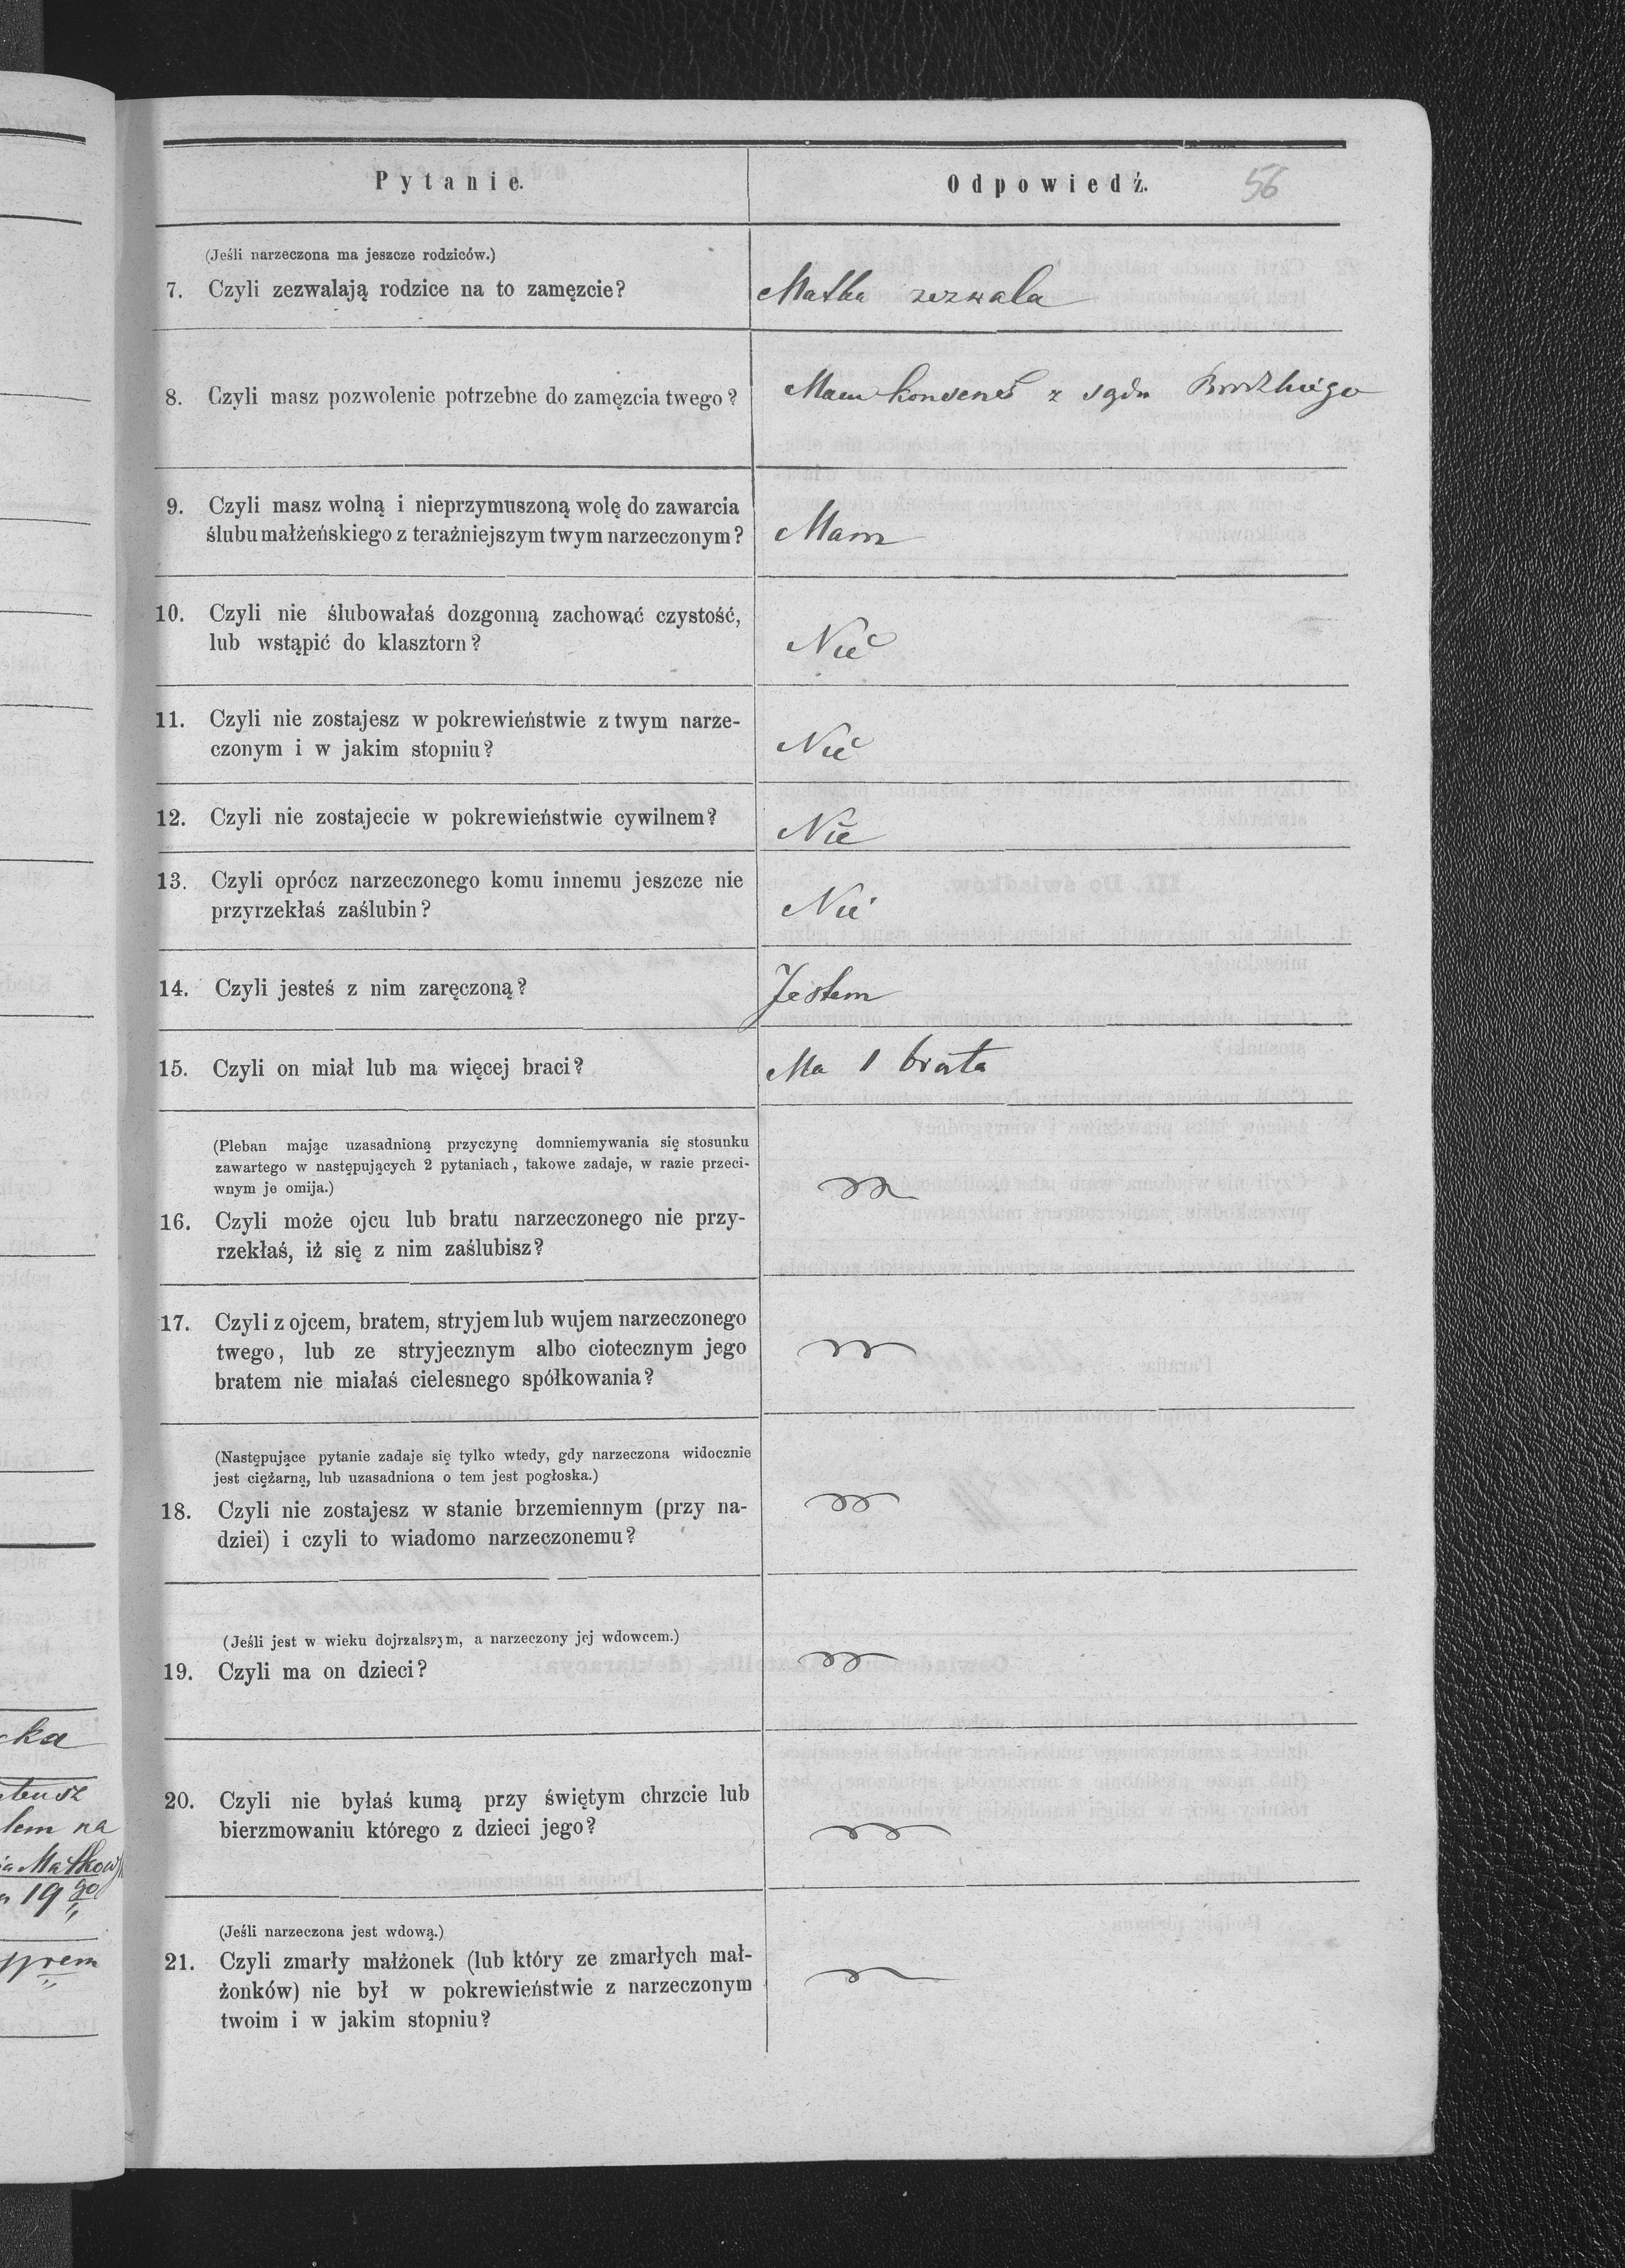 Pytanie.
Odpowiedź.
56
(Jeśli narzeczona ma jeszcze rodziców.)
7. Czyli zezwalają rodzice na to zamęzcie?
Matka zezwala
8. Czyli masz pozwolenie potrzebne do zamęzcia twego?
Mam konsens z sądu Brodzkiego
9. Czyli masz wolną i nieprzymuszoną wolę do zawarcia
ślubu małżeńskiego z teraźniejszym twym narzeczonym?
Mam
10. Czyli nie ślubowałaś dozgonną zachować czystość,
lub wstąpić do klasztorn?
Nie
11. Czyli nie zostajesz w pokrewieństwie z twym narze-
czonym i w jakim stopniu?
Nie
12. Czyli nie zostajecie w pokrewieństwie cywilnem?
Nie
13. Czyli oprócz narzeczonego komu innemu jeszcze nie
przyrzekłaś zaślubin?
Nie
14. Czyli jesteś z nim zaręczoną?
Jestem
15. Czyli on miał lub ma więcej braci?
Ma 1 brata
(Pleban mając uzasadnioną przyczynę domniemywania się stosunku
zawartego w następujących 2 pytaniach, takowe zadaje, w razie przeci-
wnym je omija.)
16. Czyli może ojcu lub bratu narzeczonego nie przy-
rzekłaś, iż się z nim zaślubisz?
17. Czyli z ojcem, bratem, stryjem lub wujem narzeczonego
twego, lub ze stryjecznym albo ciotecznym jego
bratem nie miałaś cielesnego spółkowania?
(Następujące pytanie zadaje się tylko wtedy, gdy narzeczona widocznie
jest ciężarną, lub uzasadniona o tem jest pogłoska.)
18. Czyli nie zostajesz w stanie brzemiennym (przy na-
dziei) i czyli to wiadomo narzeczonemu?
(Jeśli jest w wieku dojrzalszym, a narzeczony jej wdowcem.)
19. Czyli ma on dzieci?
20. Czyli nie byłaś kumą przy świętym chrzcie lub
bierzmowaniu którego z dzieci jego?
(Jeśli narzeczona jest wdową.)
21. Czyli zmarły małżonek (lub który ze zmarłych mał-
żonków) nie był w pokrewieństwie z narzeczonym
twoim i w jakim stopniu?